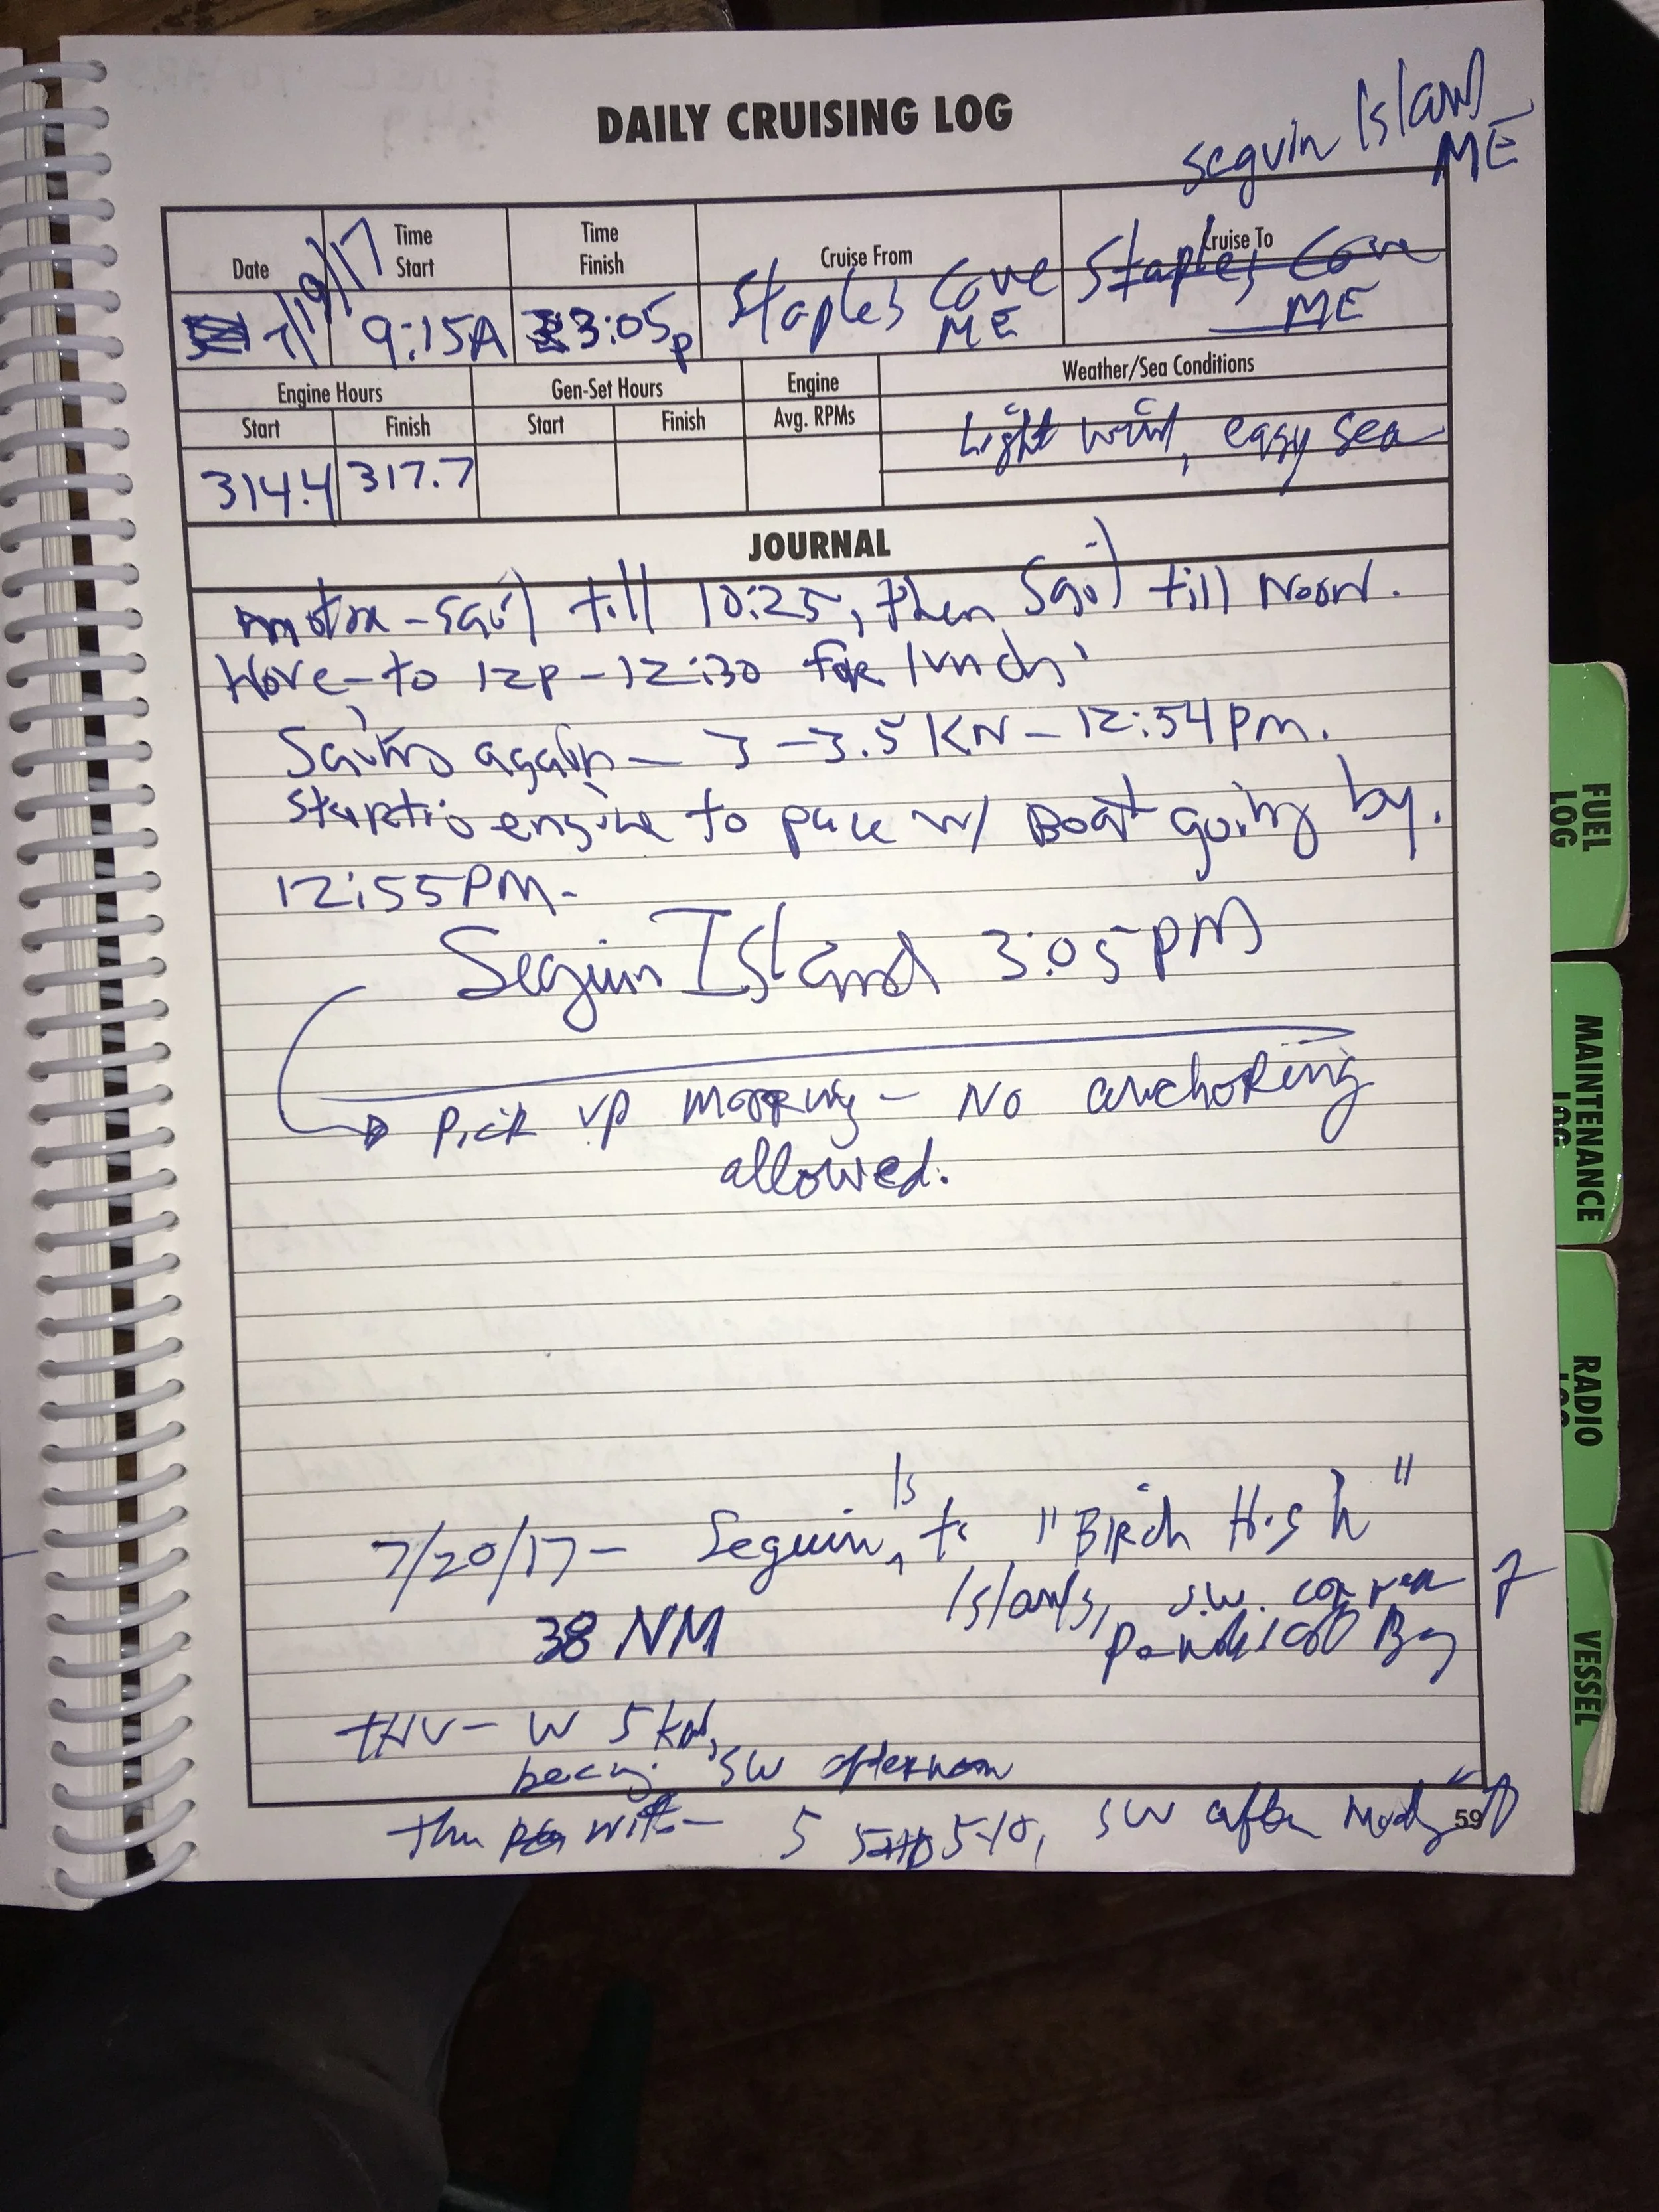 DAILY CRUISING LOG
Seguin Island
ME
Date
Time Start
Time Finish
Cruise From
Cruise To
7/19/17
9:15A
3:05p
Staples Cove
ME
Staples Cove
ME
Engine Hours
Gen-Set Hours
Engine
Weather/Sea Conditions
Start
Finish
Start
Finish
Avg. RPMs
314.4
317.7
Light wind, easy sea
JOURNAL
motor-sail till 10:25, then Sail till Noon.
Hove-to 12p-12:30 for lunch.
Sailing again - 3-3.5 KN - 12:54 pm.
engine to pace w/ Boat going by.
12:55PM-
Seguin Island 3:05PM
Pick up mooring - No anchoring
allowed.
7/20/17- Seguin Is to "Birch High"
Islands, S.W. corner of
38 NM
Bay
THU- W 5
SW afternoon
5 5-10, SW after
59
FUEL LOG
MAINTENANCE LOG
RADIO LOG
VESSEL